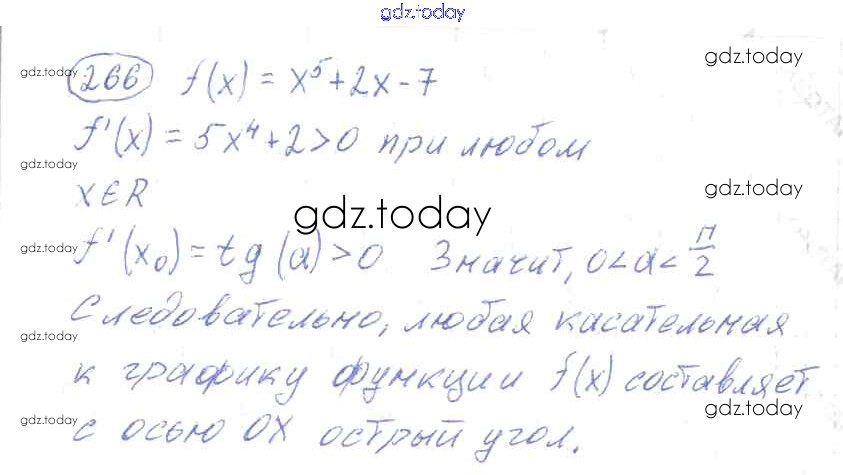 gdz.today
gdz.today
gdz.today
266 f(x) = x⁵+2x-7
f'(x) = 5x⁴+2>0 при любом
gdz.today
x∈R
gdz.today
gdz.today
gdz.today
f'(x₀) = tg(α)>0 Значит, 0<α<π/2
Следовательно, любая касательная
gdz.today
gdz.today
к графику функции f(x) составляет
gdz.today
gdz.today
с осью OX острый угол.